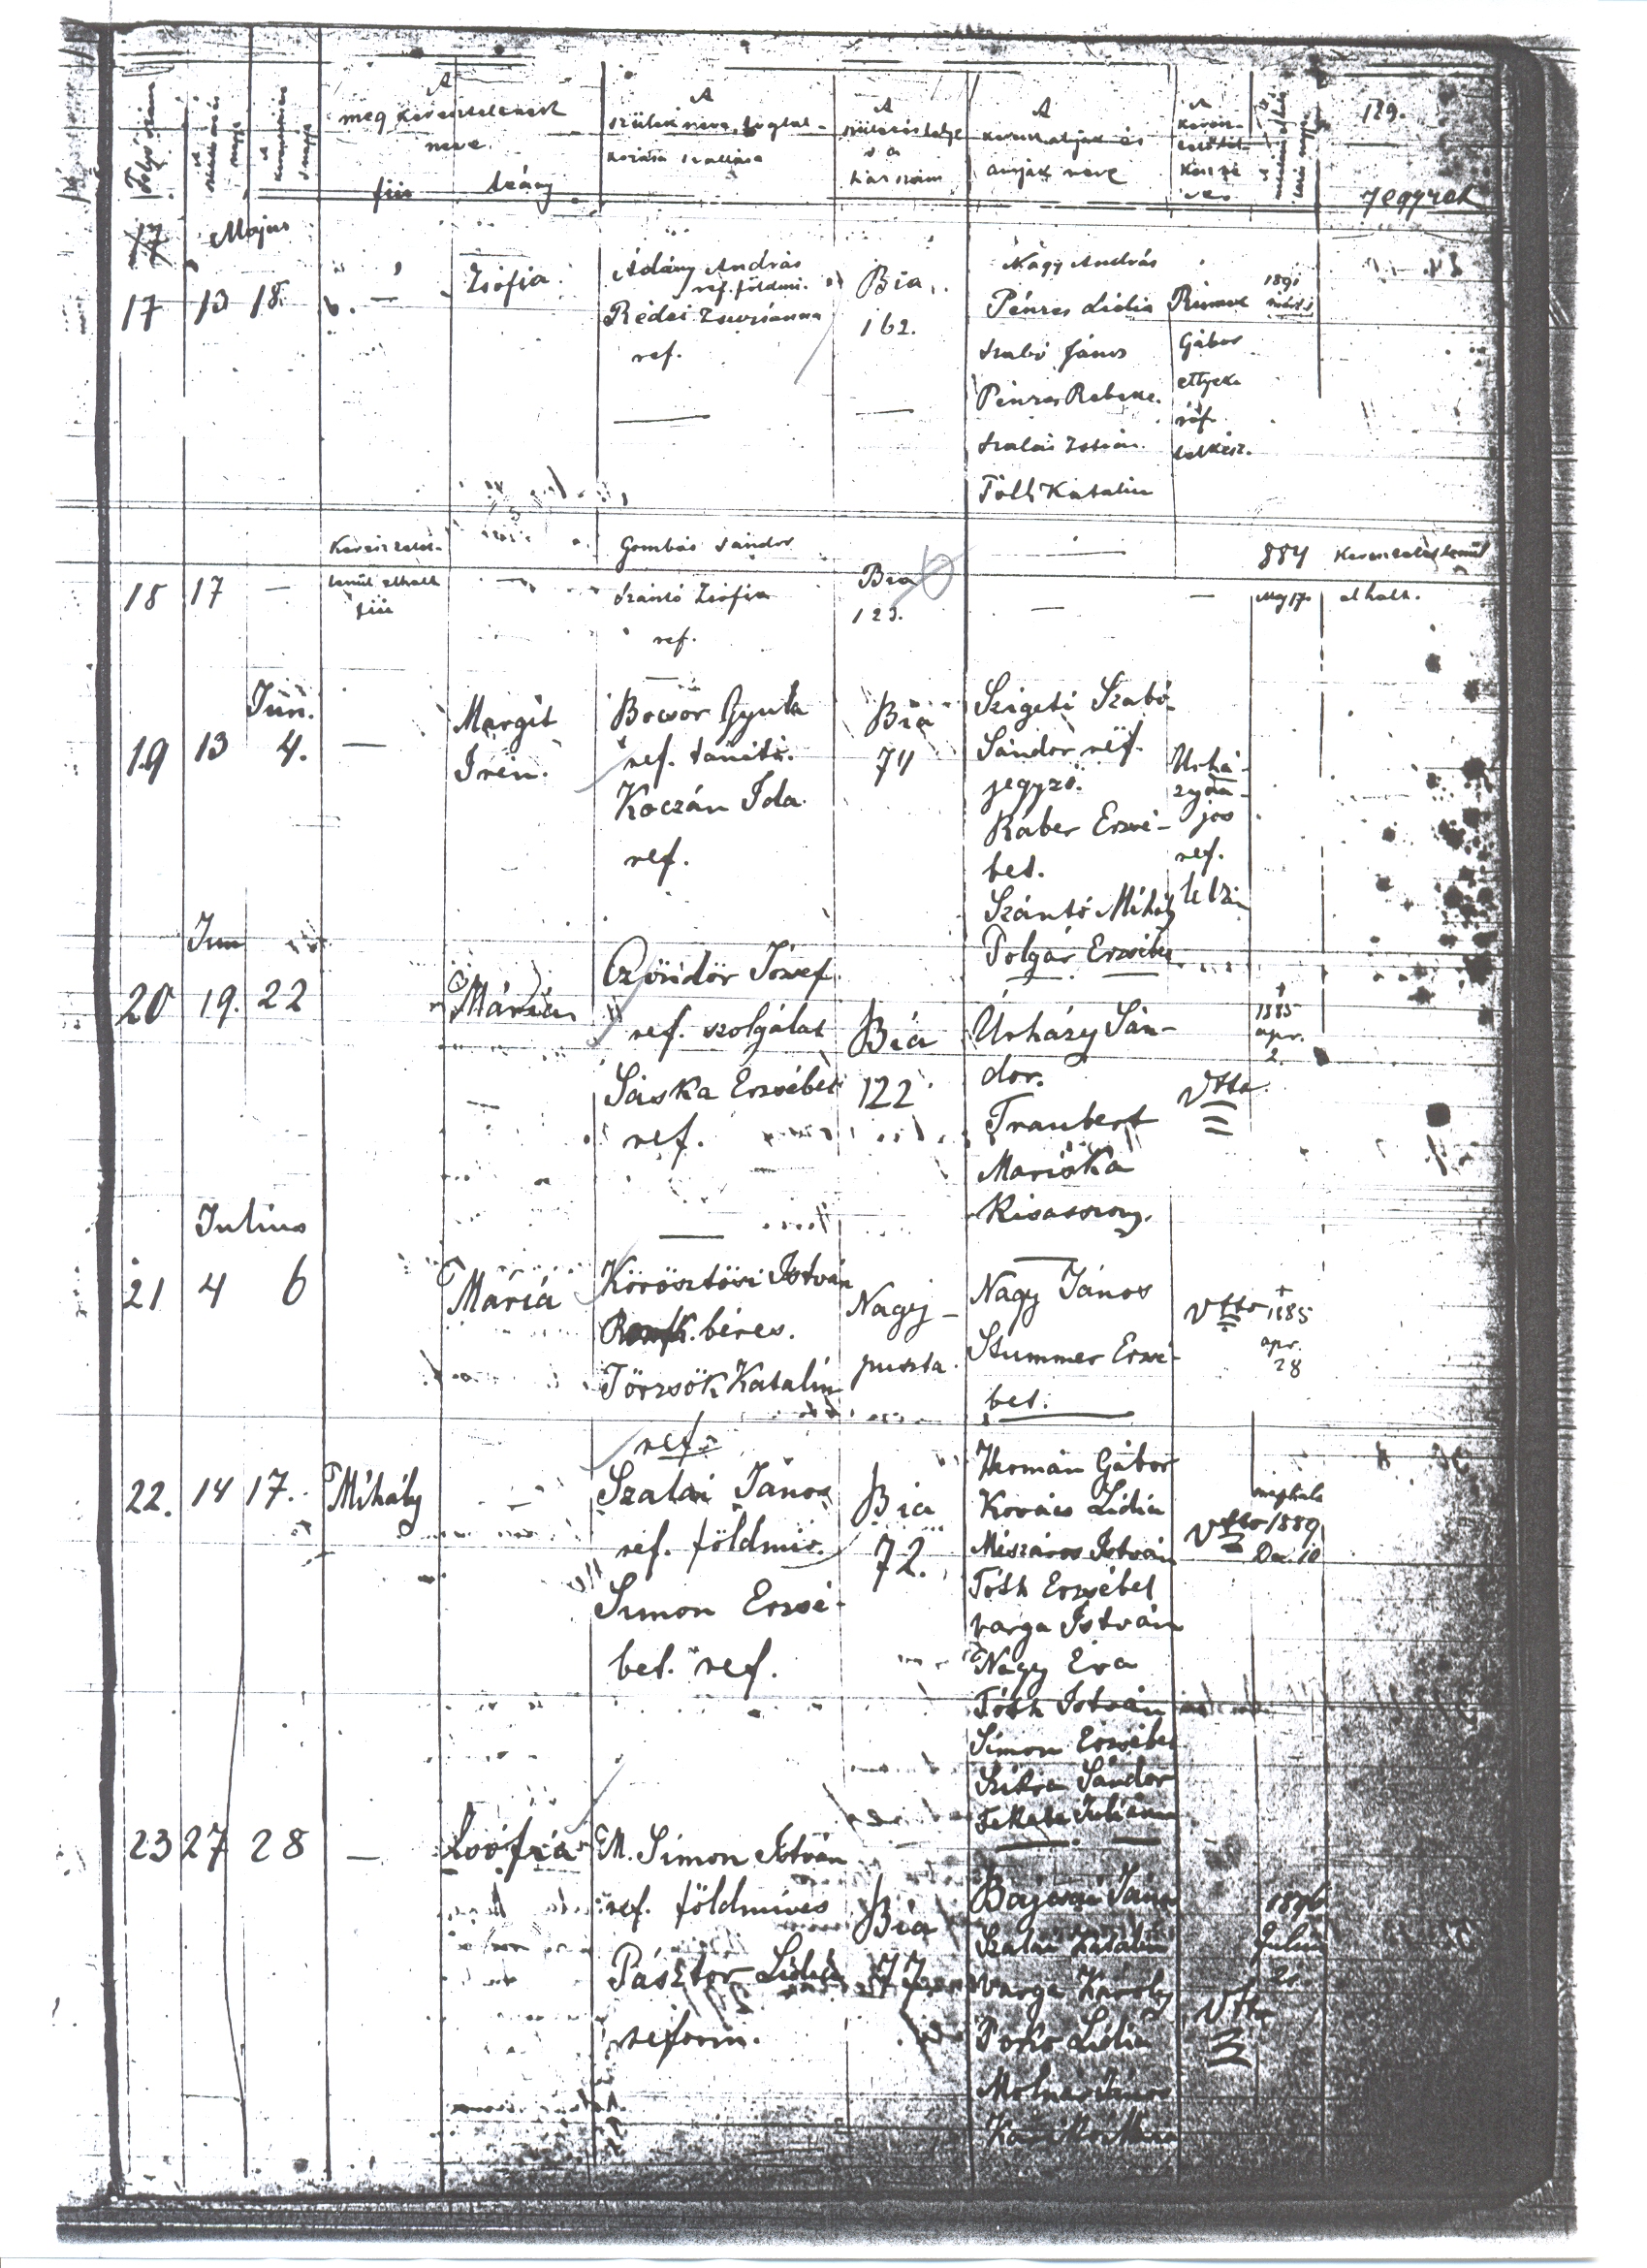 A
meg kereszteltnek
neve.
fiu
leány
A
szülék neve, foglal-
kozása vallása
A
születés helye
s a
ház szám
A
kereszt atyák és
anyák neve
129.
Jegyzet
17
Május
17 13 18. — Zsófia.
Adány András
ref. földmi.
Rédei Zsuzsánna
ref.
Bia
162.
Nagy András
Pénzes Lidia
Szabó János
Pénzes Rebeka.
Szalai
Tóth Katalin
Gábor
etyeki
ref.
lelkész.
1891
18 17 —
Keresztelet-
lenül elhalt
fiu
Gombás Sándor
Szántó Zsófia
ref.
Bia
123.
—
884
Máj 17.
Kereszteletlenül
elhalt.
Jun.
19 13 4. —
Margit
Irén.
Bocsor Gyula
ref. tanító.
Koczán Ida
ref.
Bia
74
Szigeti Szabó
Sándor ref.
jegyző.
Ráber Erzsé-
bet.
Szántó Mihály
Polgár Erzsébet
Urhá-
zy La-
jos
ref.
Jun
20 19. 22
Mária
Czöndör József
ref. szolgálat
Sáska Erzsébet
ref.
Bia
122
Úrházy Sán-
dor.
Traubert
Mariska
Kisasszony.
Utta
†
1885
apr.
2.
Julius
21 4 6
Mariá
Körösztösi István
béres.
Törzsök Katalin
ref.
Nagy-
puszta.
Nagy János
Stummer Erzsé-
bet.
Utto
†
1885
apr.
28
22. 14 17. Mihály —
Szalai János
ref. földmiv.
Simon Erzsé-
bet. ref.
Bia
72.
Homán Gábor
Kovács Lidia
Mészáros István
Tóth Erzsébet
Varga István
Nagy Éva
Tóth István
Simon Erzsébet
Szikra Sándor
Fekete Juliánna
Utto
meghalt
1889
Dec. 10
23 27 28 — Zsófia
M. Simon István
ref. földmives
Pásztor Lidia
reform.
Bia
77
Bajcsai János
Szalai Katalin
Varga Károly
Lidia
Molnár János
Utto
1896
Julius